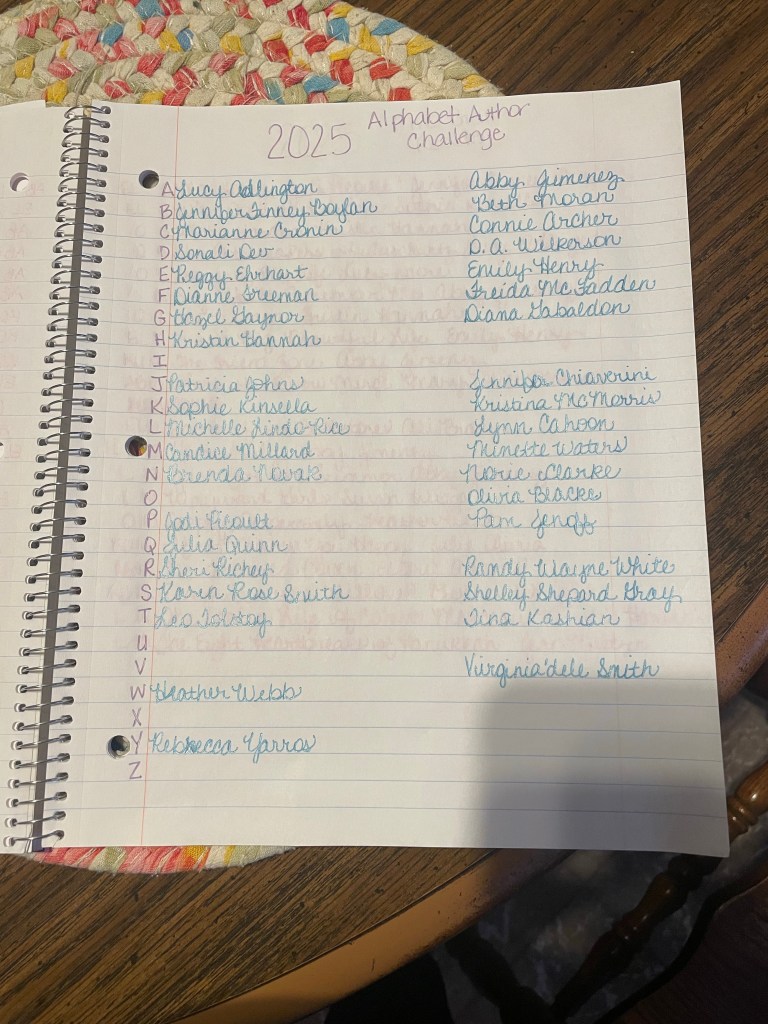 2025 Alphabet Author Challenge
A Lucy Adlington Abby Jimenez
B Jennifer Finney Boylan Beth Moran
C Marianne Cronin Connie Archer
D Sonali Dev D. A. Wilkerson
E Peggy Ehrhart Emily Henry
F Dianne Freeman Freida McFadden
G Hazel Gaynor Diana Gabaldon
H Kristin Hannah
I
J Patricia Johns Jennifer Chiaverini
K Sophie Kinsella Kristina McMorris
L Michelle Lindo-Rice Lynn Cahoon
M Candice Millard Minette Waters
N Brenda Novak Norie Clarke
O Olivia Blacke
P Jodi Picoult Pam Jenoff
Q Julia Quinn
R Sheri Richey Randy Wayne White
S Karen Rose Smith Shelley Shepard Gray
T Leo Tolstoy Tina Kashian
U
V Virginia'dele Smith
W Heather Webb
X
Y Rebecca Yarros
Z